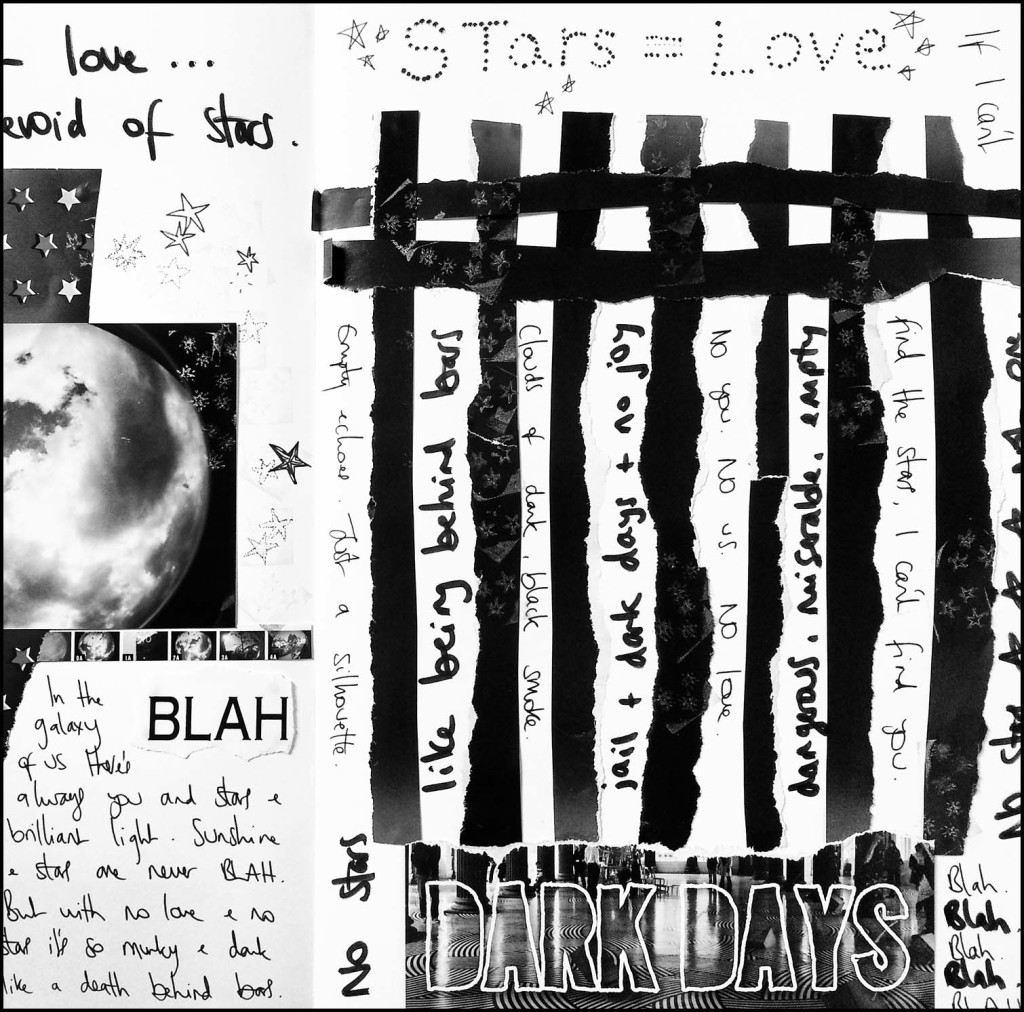 - love ...
evoid of stars.
BLAH
In the
galaxy
of us there's
always you and stars &
brilliant light. Sunshine
& stars are never BLAH.
But with no love & no
stars it's so murky & dark
like a death behind bars.
STars = Love
If I can't
Empty echoes. Just a silhouette.
like being behind bars
Clouds of dark, black smoke.
jail + dark days + no joy
No you. No us. No love.
dangerous, miserable, empty
find the stars, I can't find you.
No stars
No stars
one.
DARK DAYS
Blah.
Blah.
Blah.
Blah.
BLAH